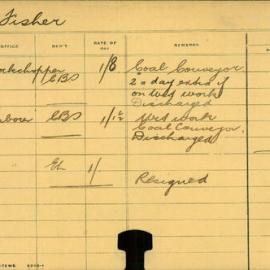 Fisher
OFFICE DEP'T RATE OF PAY REMARKS
ckchopper EBS 1/8 Coal Conveyor
2 a day extra if
on Wet work
Discharged
abour EBS 1/ Wet work
Coal Conveyor.
Discharged
1/
Resigned